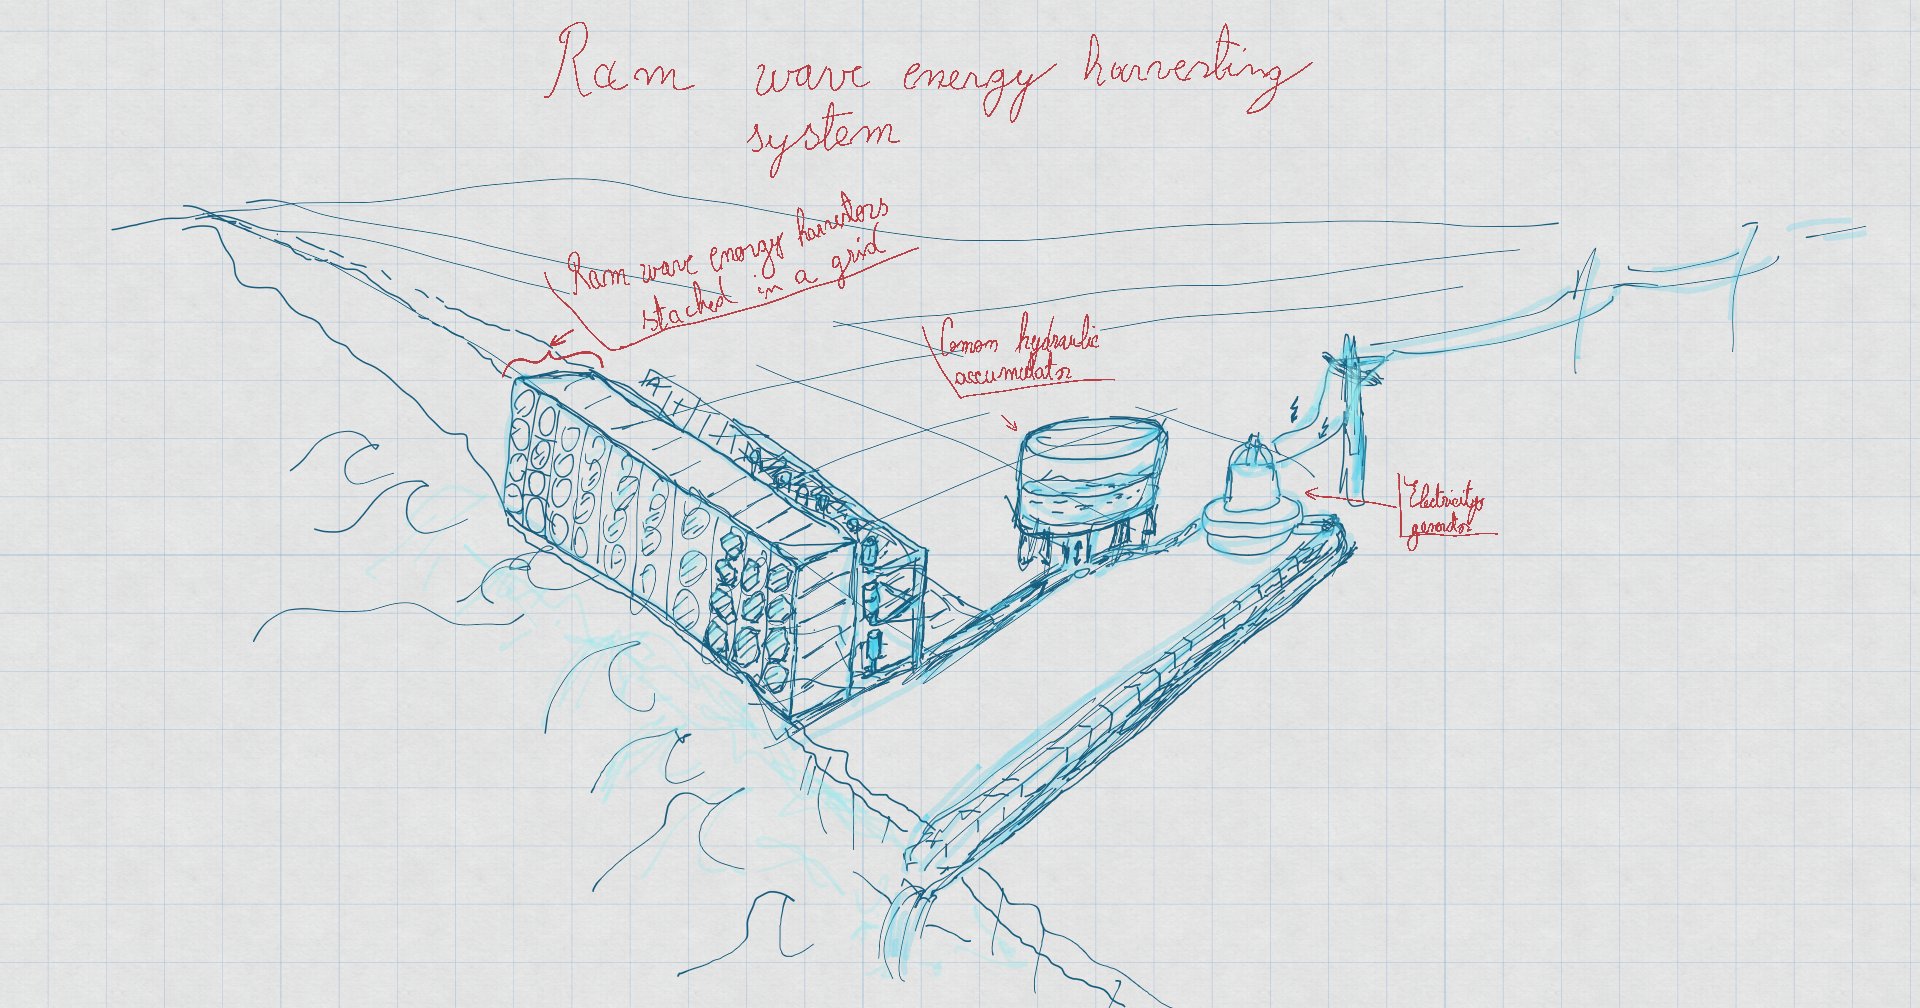 Ram wave energy harvesting
system
Ram wave energy harvestors
stacked in a grid
Comon hydraulic
accumulator
Electricity
generator